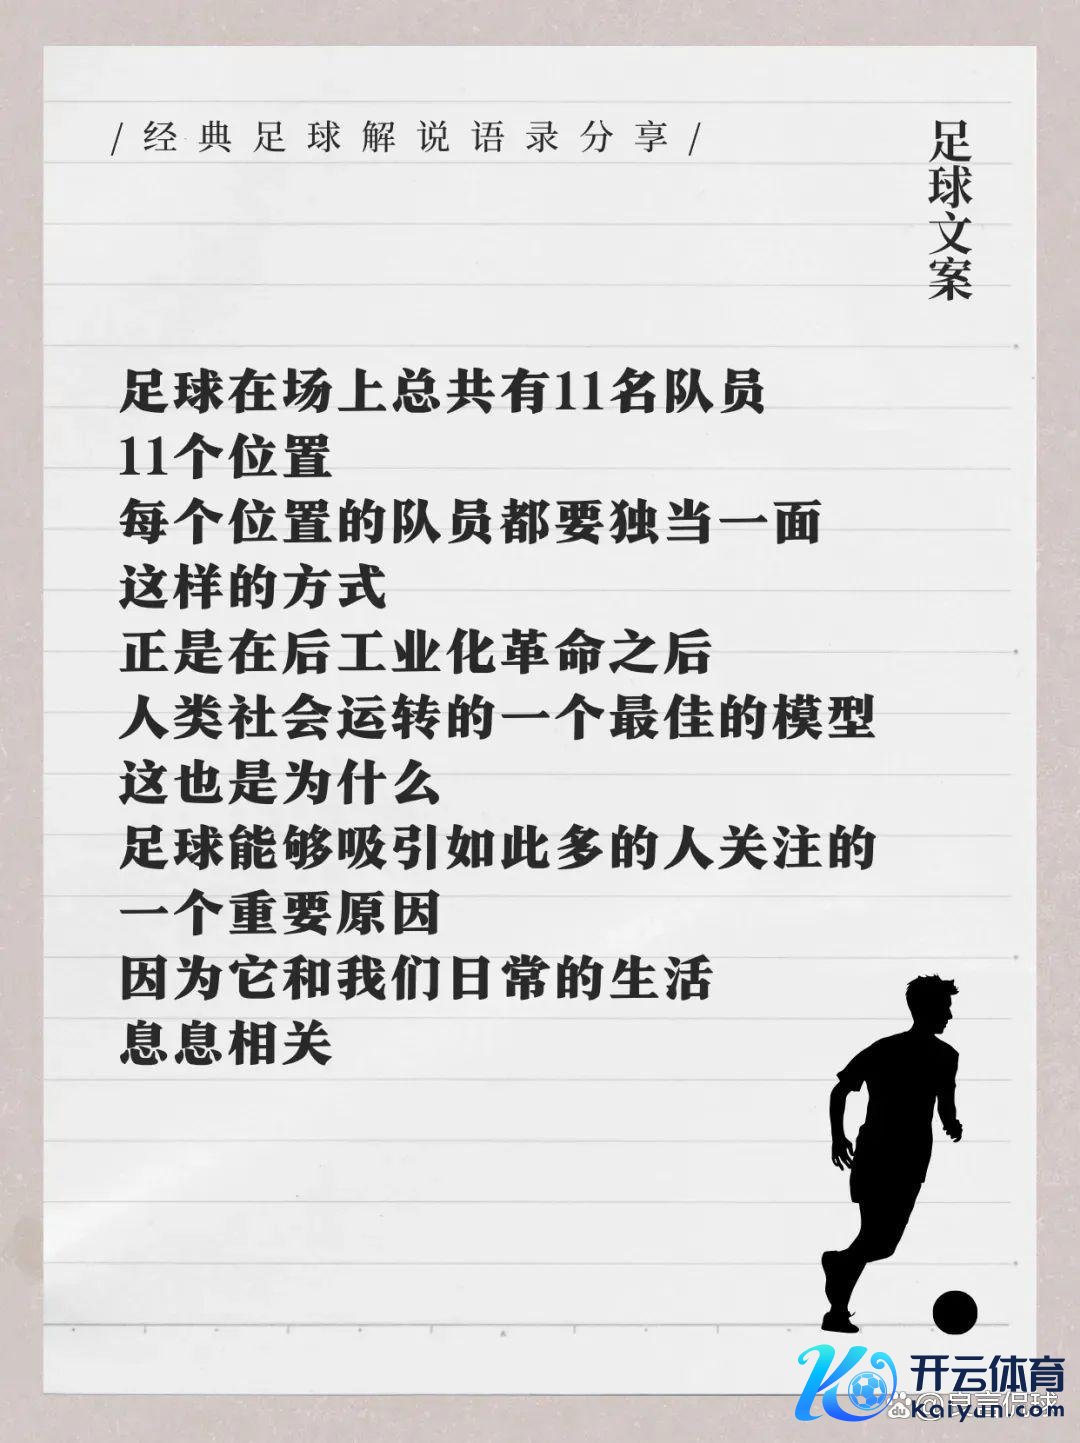 /经典足球解说语录分享/
足球文案
足球在场上总共有11名队员
11个位置
每个位置的队员都要独当一面
这样的方式
正是在后工业化革命之后
人类社会运转的一个最佳的模型
这也是为什么
足球能够吸引如此多的人关注的
一个重要原因
因为它和我们日常的生活
息息相关
开云体育
Kaiyun.com